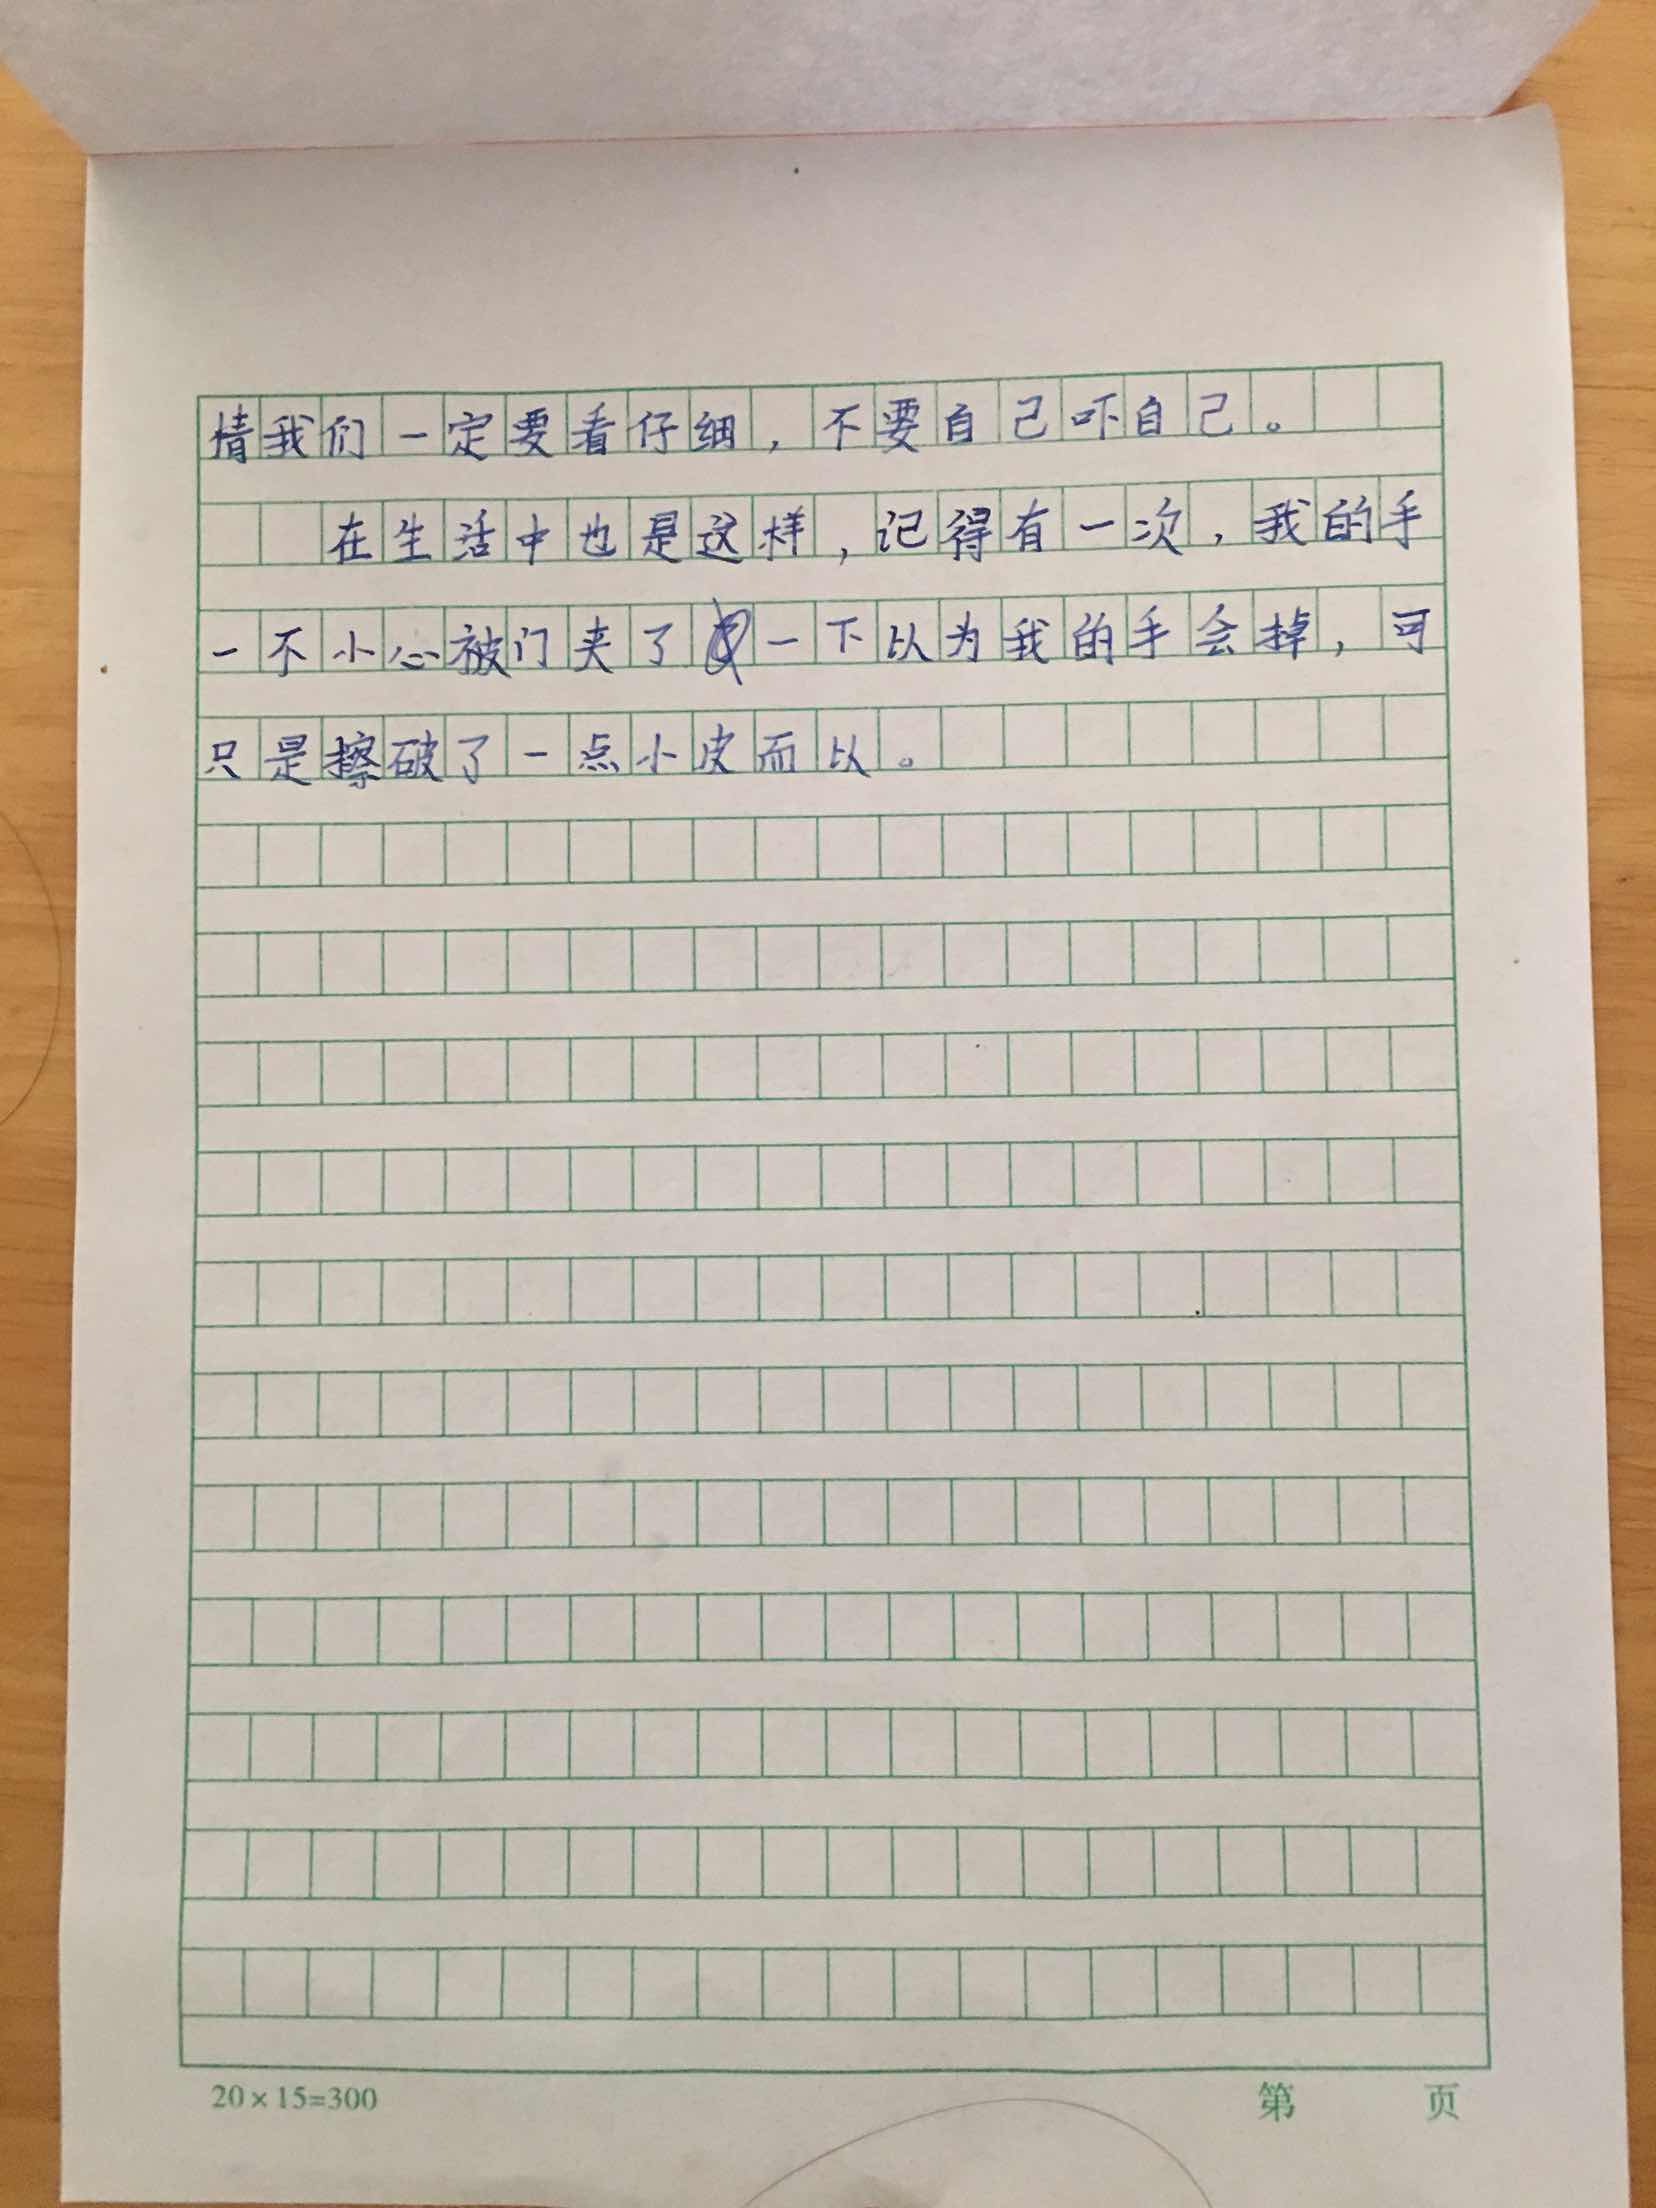 情我们一定要看仔细，不要自己吓自己。
在生活中也是这样，记得有一次，我的手
一不小心被门夹了一下以为我的手会掉，可
只是擦破了一点小皮而以。
20×15=300
第 页